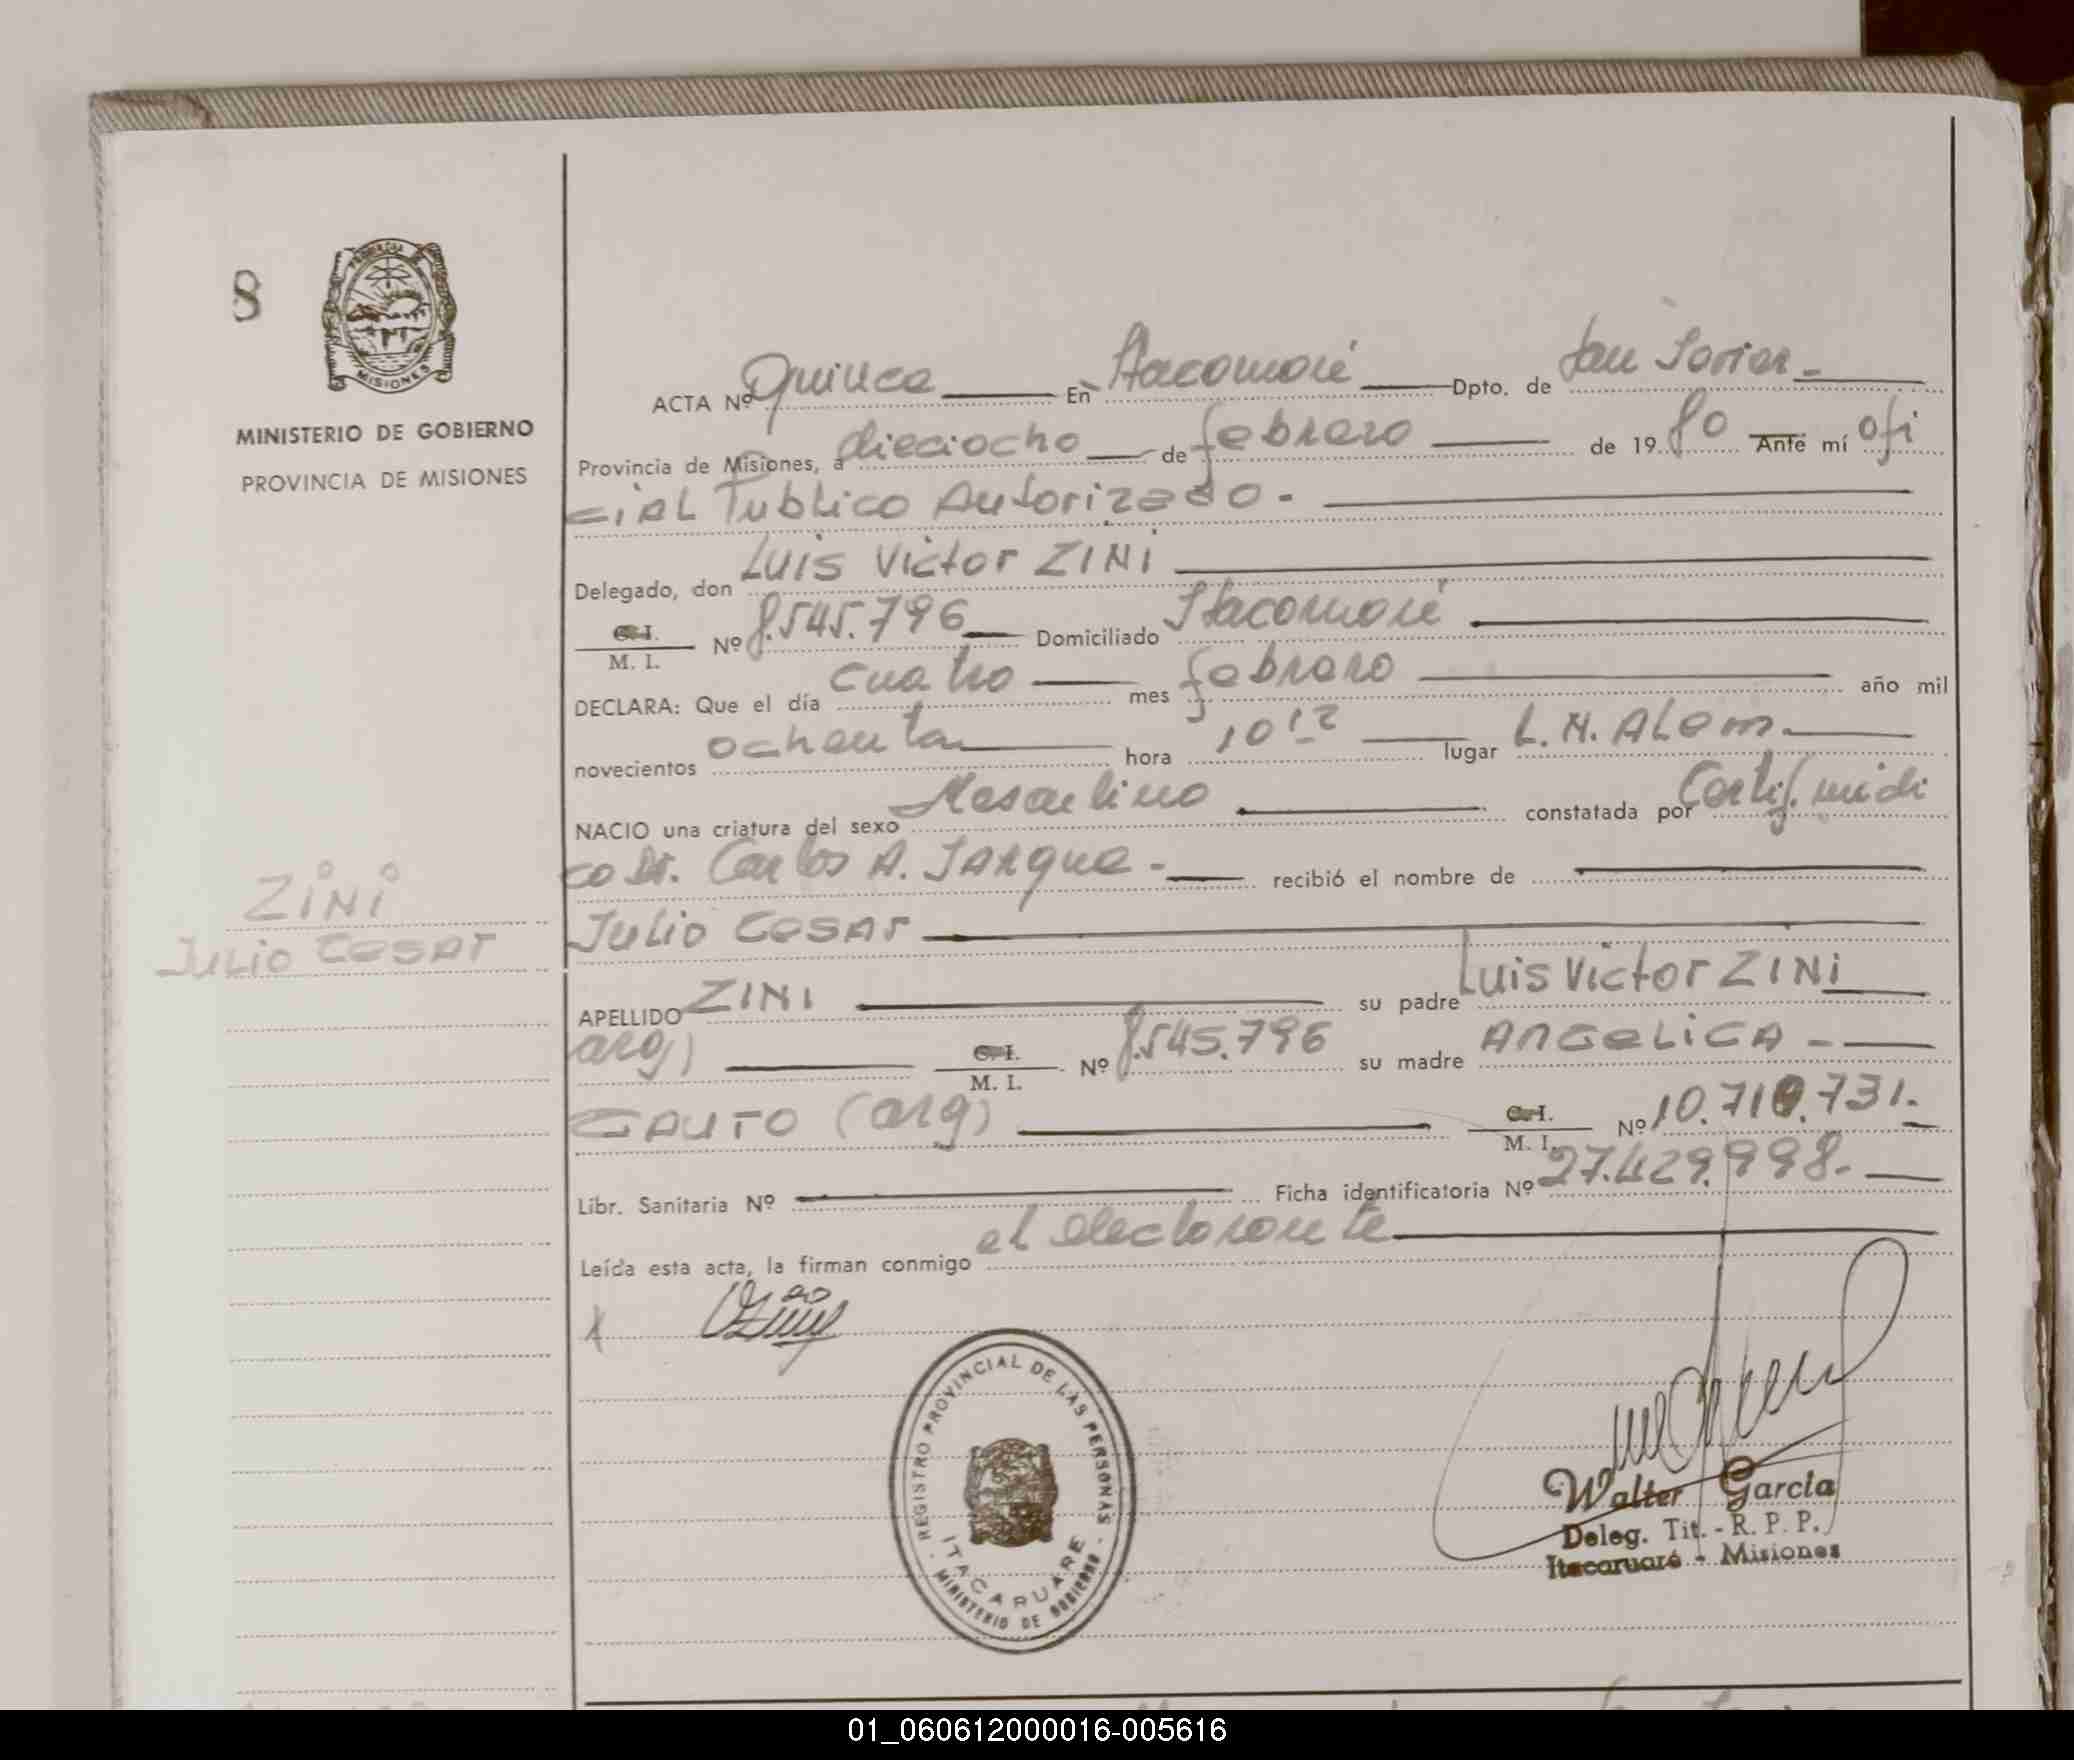 8
PROVINCIA
MISIONES
MINISTERIO DE GOBIERNO
PROVINCIA DE MISIONES
ZINI
Julio Cesar
ACTA Nº Quince En Itacaruaré Dpto. de San Javier.-
Provincia de Misiones, a dieciocho de febrero de 19 80 Ante mí ofi
cial Publico Autorizado.-
Delegado, don Luis Victor ZINI
C. I. / M. I. Nº 8.545.796 Domiciliado Itacaruaré
DECLARA: Que el día cuatro mes febrero año mil
novecientos ochenta hora 10 lugar L. N. Alem.-
NACIO una criatura del sexo Masculino constatada por Certif. médi
co Dr. Carlos A. recibió el nombre de
Julio Cesar
APELLIDO ZINI su padre Luis Victor ZINI
arg) C. I. / M. I. Nº 8.545.796 su madre Angelica -
GAUTO (arg) C. I. / M. I. Nº 10.710.731.-
Libr. Sanitaria Nº Ficha identificatoria Nº 27.429.998.-
Leída esta acta, la firman conmigo el declarante
X
REGISTRO PROVINCIAL DE LAS PERSONAS
ITACARUARE
MINISTERIO DE GOBIERNO
Walter García
Deleg. Tit. - R. P. P.
Itacaruaré - Misiones
01_060612000016-005616